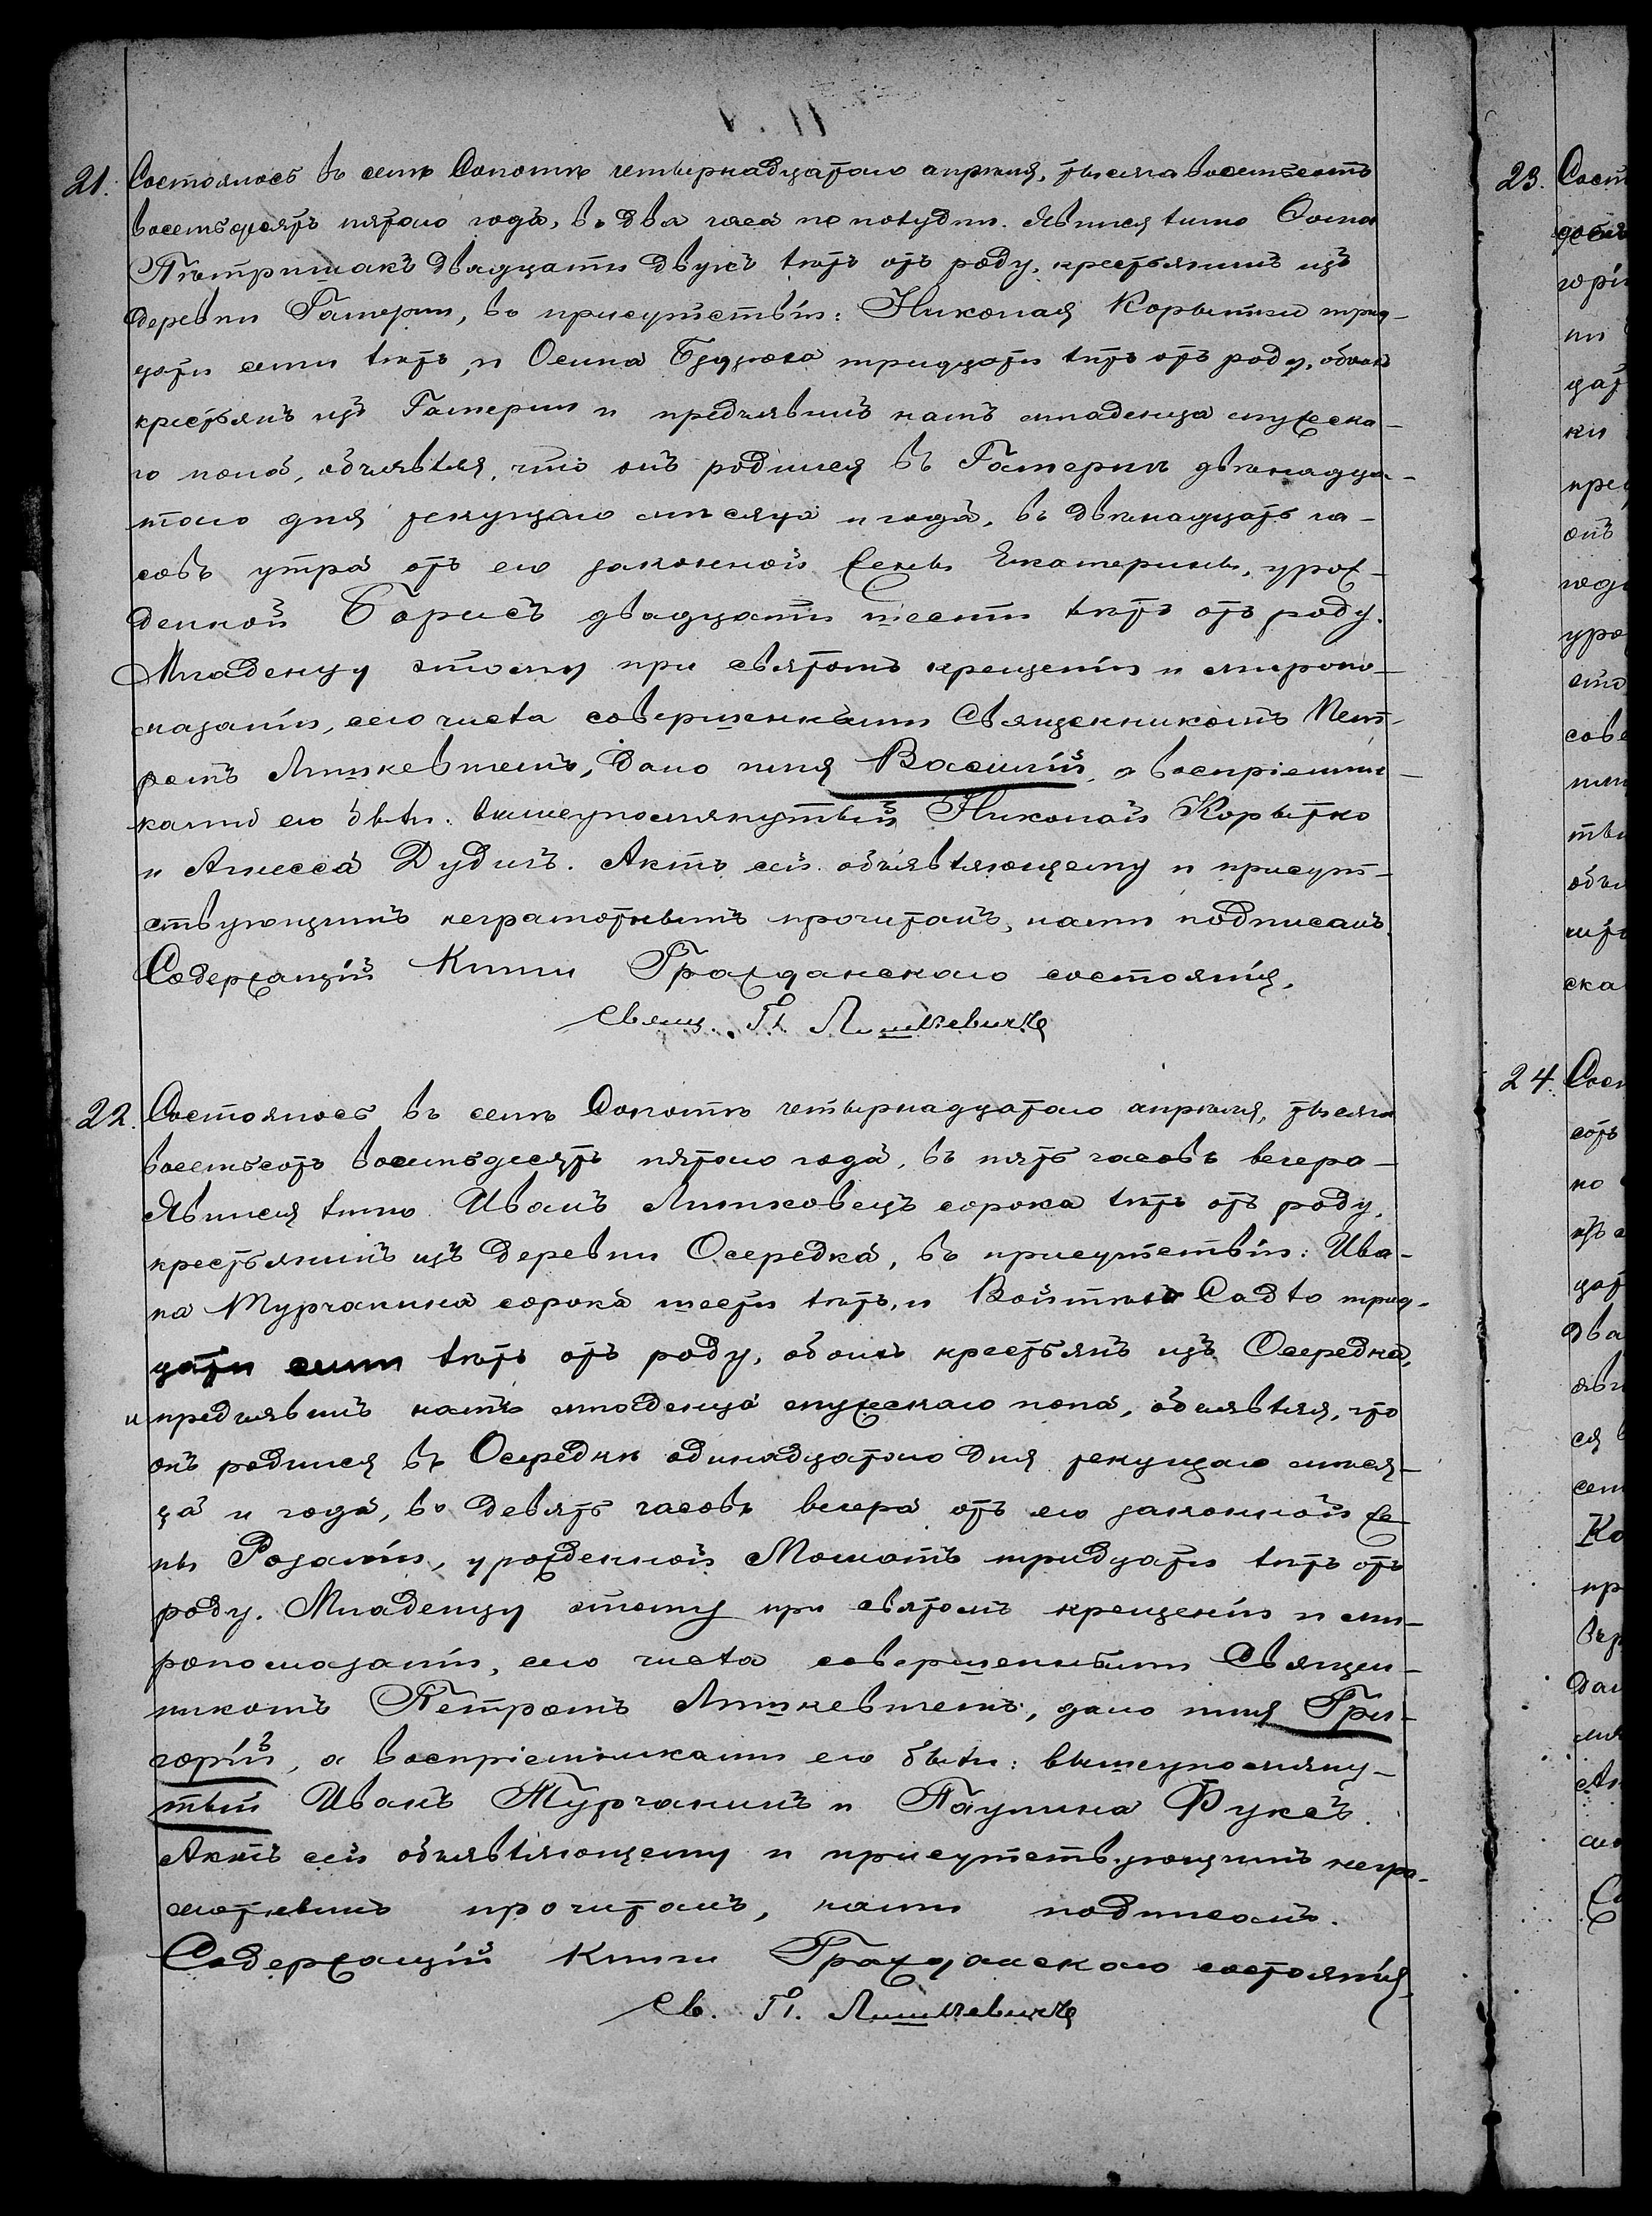 21. Состоялось въ селѣ Сопотѣ четырнадцатаго апрѣля, тысяча восемьсотъ
восемьдесятъ пятаго года, въ два часа по полудни. Явился лично Ѳома
Пѣтришакъ двадцати двухъ лѣтъ отъ роду, крестьянинъ изъ
деревни Гамерни, въ присутствіи: Николая Корытки трид-
цати семи лѣтъ, и Осипа тридцати лѣтъ отъ роду, обоихъ
крестьянъ изъ Гамерни и предъявилъ намъ младенца мужеска-
го пола, объявляя, что онъ родился въ Гамерни двѣнадца-
таго дня текущаго мѣсяца и года, въ двѣнадцать ча-
совъ утра отъ его законной жены Екатерины, урож-
денной Борисъ двадцати шести лѣтъ отъ роду.
Младенцу этому при святомъ крещеніи и миропо-
мазаніи, сего числа совершенными Священникомъ Пет-
ромъ Лишкевичемъ, дано имя Василій, а воспріемни-
ками его были: вышеупомянутый Николай Корытко
и Агнесса Дудичъ. Актъ сей объявляющему и присут-
ствующимъ неграмотнымъ прочитанъ, нами подписанъ.
Содержащій Книги Гражданскаго состоянія,
Свящ. П. Лишкевичъ
22. Состоялось въ селѣ Сопотѣ четырнадцатаго апрѣля, тысяча
восемьсотъ восемьдесятъ пятаго года, въ пять часовъ вечера
Явился лично Иванъ Липковецъ сорока лѣтъ отъ роду,
крестьянинъ изъ деревни Осередка, въ присутствіи: Ива-
на Турчанина сорока шести лѣтъ, и Садло трид-
цати семи лѣтъ отъ роду, обоихъ крестьянъ изъ Осередка,
и предъявилъ намъ младенца мужескаго пола, объявляя, что
онъ родился въ Осередкѣ одинадцатаго дня текущаго мѣся-
ца и года, въ девять часовъ вечера отъ его законной же-
ны Розаліи, урожденной Моматъ тридцати лѣтъ отъ
роду. Младенцу этому при святомъ крещеніи и ми-
ропомазаніи, сего числа совершенными Священ-
никомъ Петромъ Лишкевичемъ, дано имя Гри-
горій, а воспріемниками его были: вышеупомяну-
тый Иванъ Турчанинъ и Паулина Фуксъ.
Актъ сей объявляющему и присутствующимъ негра-
мотнымъ прочитанъ, нами подписанъ.
Содержащій Книги Гражданскаго состоянія,
Св. П. Лишкевичъ
23.
24.